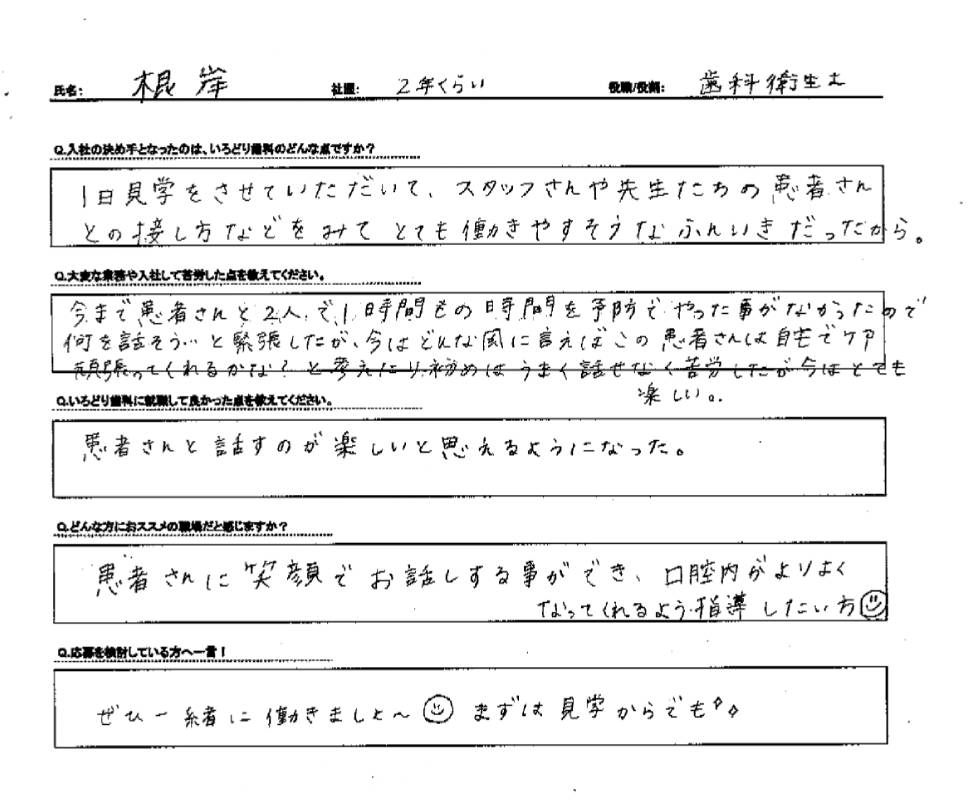 氏名: 根岸 社歴: 2年くらい 役職/役割: 歯科衛生士
Q.入社の決め手となったのは、いろどり歯科のどんな点ですか？
1日見学をさせていただいて、スタッフさんや先生たちの患者さん
との接し方などをみて とても働きやすそうなふんいきだったから。
Q.大変な業務や入社して苦労した点を教えてください。
今まで患者さんと2人で1時間もの時間を予防でやった事がなかったので
何を話そう…と緊張したが、今はどんな風に言えばこの患者さんは自宅でケア
頑張ってくれるかな？と考えたり、初めはうまく話せなく苦労したが今はとても
楽しい。
Q.いろどり歯科に就職して良かった点を教えてください。
患者さんと話すのが楽しいと思えるようになった。
Q.どんな方におススメの職場だと感じますか？
患者さんに笑顔でお話しする事ができ、口腔内がよりよく
なってくれるよう指導したい方
Q.応募を検討している方へ一言！
ぜひ一緒に働きましょ〜 まずは見学からでも